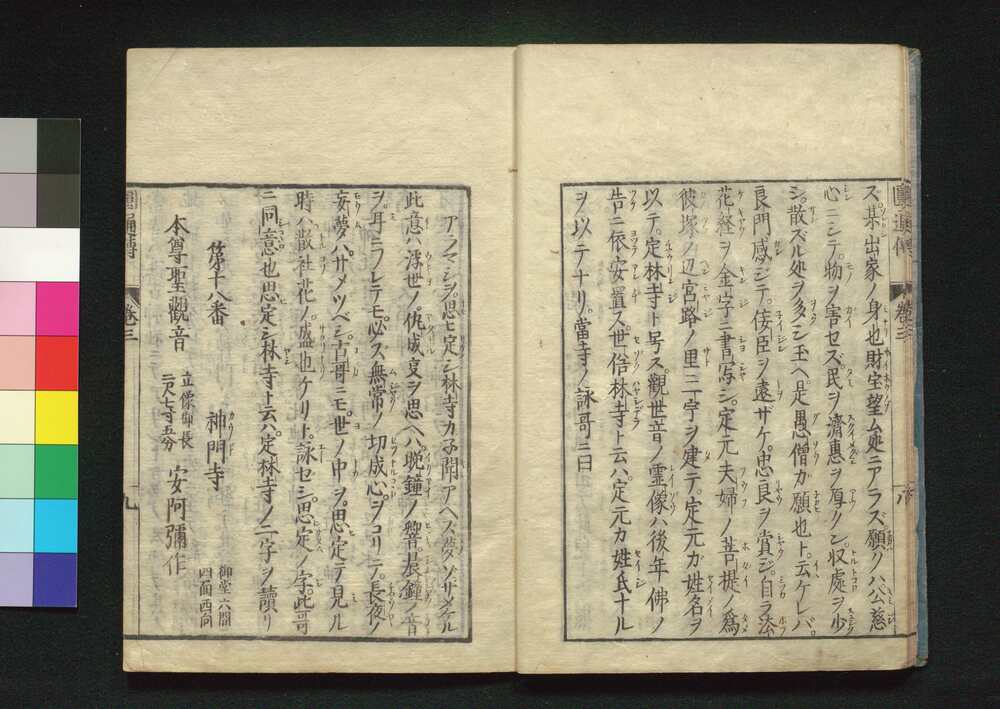 ス某出家ノ身也財宝望ム処ニアラズ願クハ公慈
心ニシテ物ヲ害セズ民ヲ濟惠ヲ厚クシ収處ヲ少
シ散ズル処ヲ多シ玉ヘ是愚僧ガ願也ト云ケレバ
良門感ジテ侫臣ヲ遠ザケ忠良ヲ賞ジ自ラ法
花経ヲ金字ニ書写シ定元夫婦ノ菩提ノ為
彼塚ノ辺宮路ノ里ニ一宇ヲ建テ定元ガ姓名ヲ
以テ定林寺ト号ス觀世音ノ霊像ハ後年佛ノ
告ニ依安置ス世俗林寺ト云ハ定元カ姓氏ナル
ヲ以テナリ當寺ノ詠哥ニ曰
アラマシヲ思ヒ定シ林寺カ子聞アヘズ夢ゾサメケル
此意ハ浮世ノ仇成叓ヲ思ヘハ晩鐘ノ響晨鐘ノ音
ヲ耳ニフレテモ必ス無常ノ切成心ヲコリテ長夜ノ
妄夢ハサメツベシ古哥ニモ世ノ中ヲ思定テ見ル
時ハ散社花ノ盛也ケリト詠セシ思定ノ字此哥
ニ同意也思定シ林寺ト云ハ定林寺ノ二字ヲ讀リ
第十八番 神門寺
御堂六間
四面西向
本尊聖觀音
立像御長
二尺七寸五分
安阿彌作
圓通傳 卷三 九